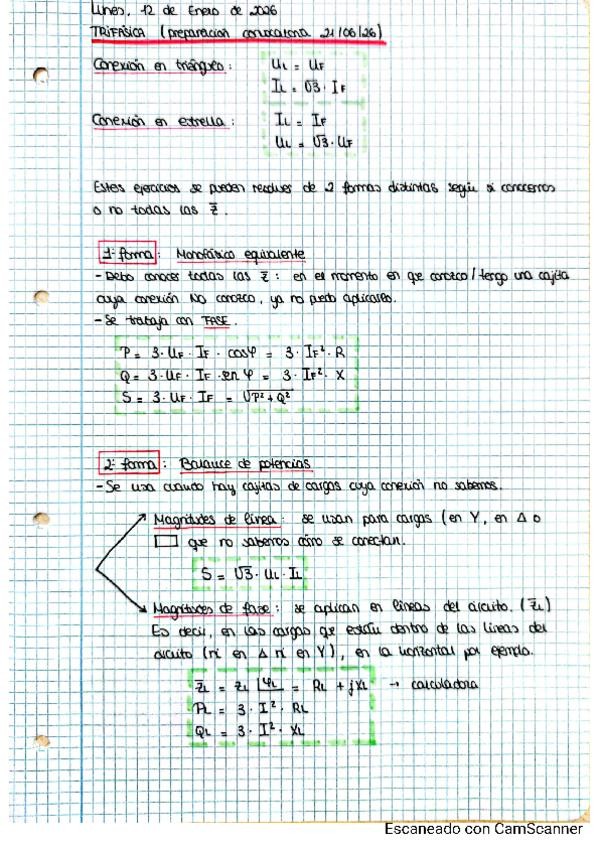 Lunes, 12 de Enero de 2026
TRIFÁSICA (preparación convocatoria 21/01/26)
Conexión en triángulo: UL = UF
IL = √3 · IF
Conexión en estrella: IL = IF
UL = √3 · UF
Estos ejercicios se pueden resolver de 2 formas distintas según si conocemos
o no todas las z̄.
1ª forma: Monofásico equivalente
- Debo conocer todas las z̄: en el momento en que conozco/tengo una cajita
cuya conexión NO conozco, ya no puedo aplicarlo.
- Se trabaja con FASE.
P = 3 · UF · IF · cosφ = 3 · IF² · R
Q = 3 · UF · IF · sen φ = 3 · IF² · X
S = 3 · UF · IF = √P² + Q²
2ª forma: Balance de potencias
- Se usa cuando hay cajitas de cargas cuya conexión no sabemos.
Magnitudes de línea: se usan para cargas (en Y, en Δ o
que no sabemos cómo se conectan.
S = √3 · UL · IL
Magnitudes de fase: se aplican en líneas del circuito. (z̄L)
Es decir, en las cargas que están dentro de las líneas del
circuito (ni en Δ ni en Y), en la horizontal por ejemplo.
z̄L = zL |φL = RL + jXL → calculadora
PL = 3 · I² · RL
QL = 3 · I² · XL
Escaneado con CamScanner